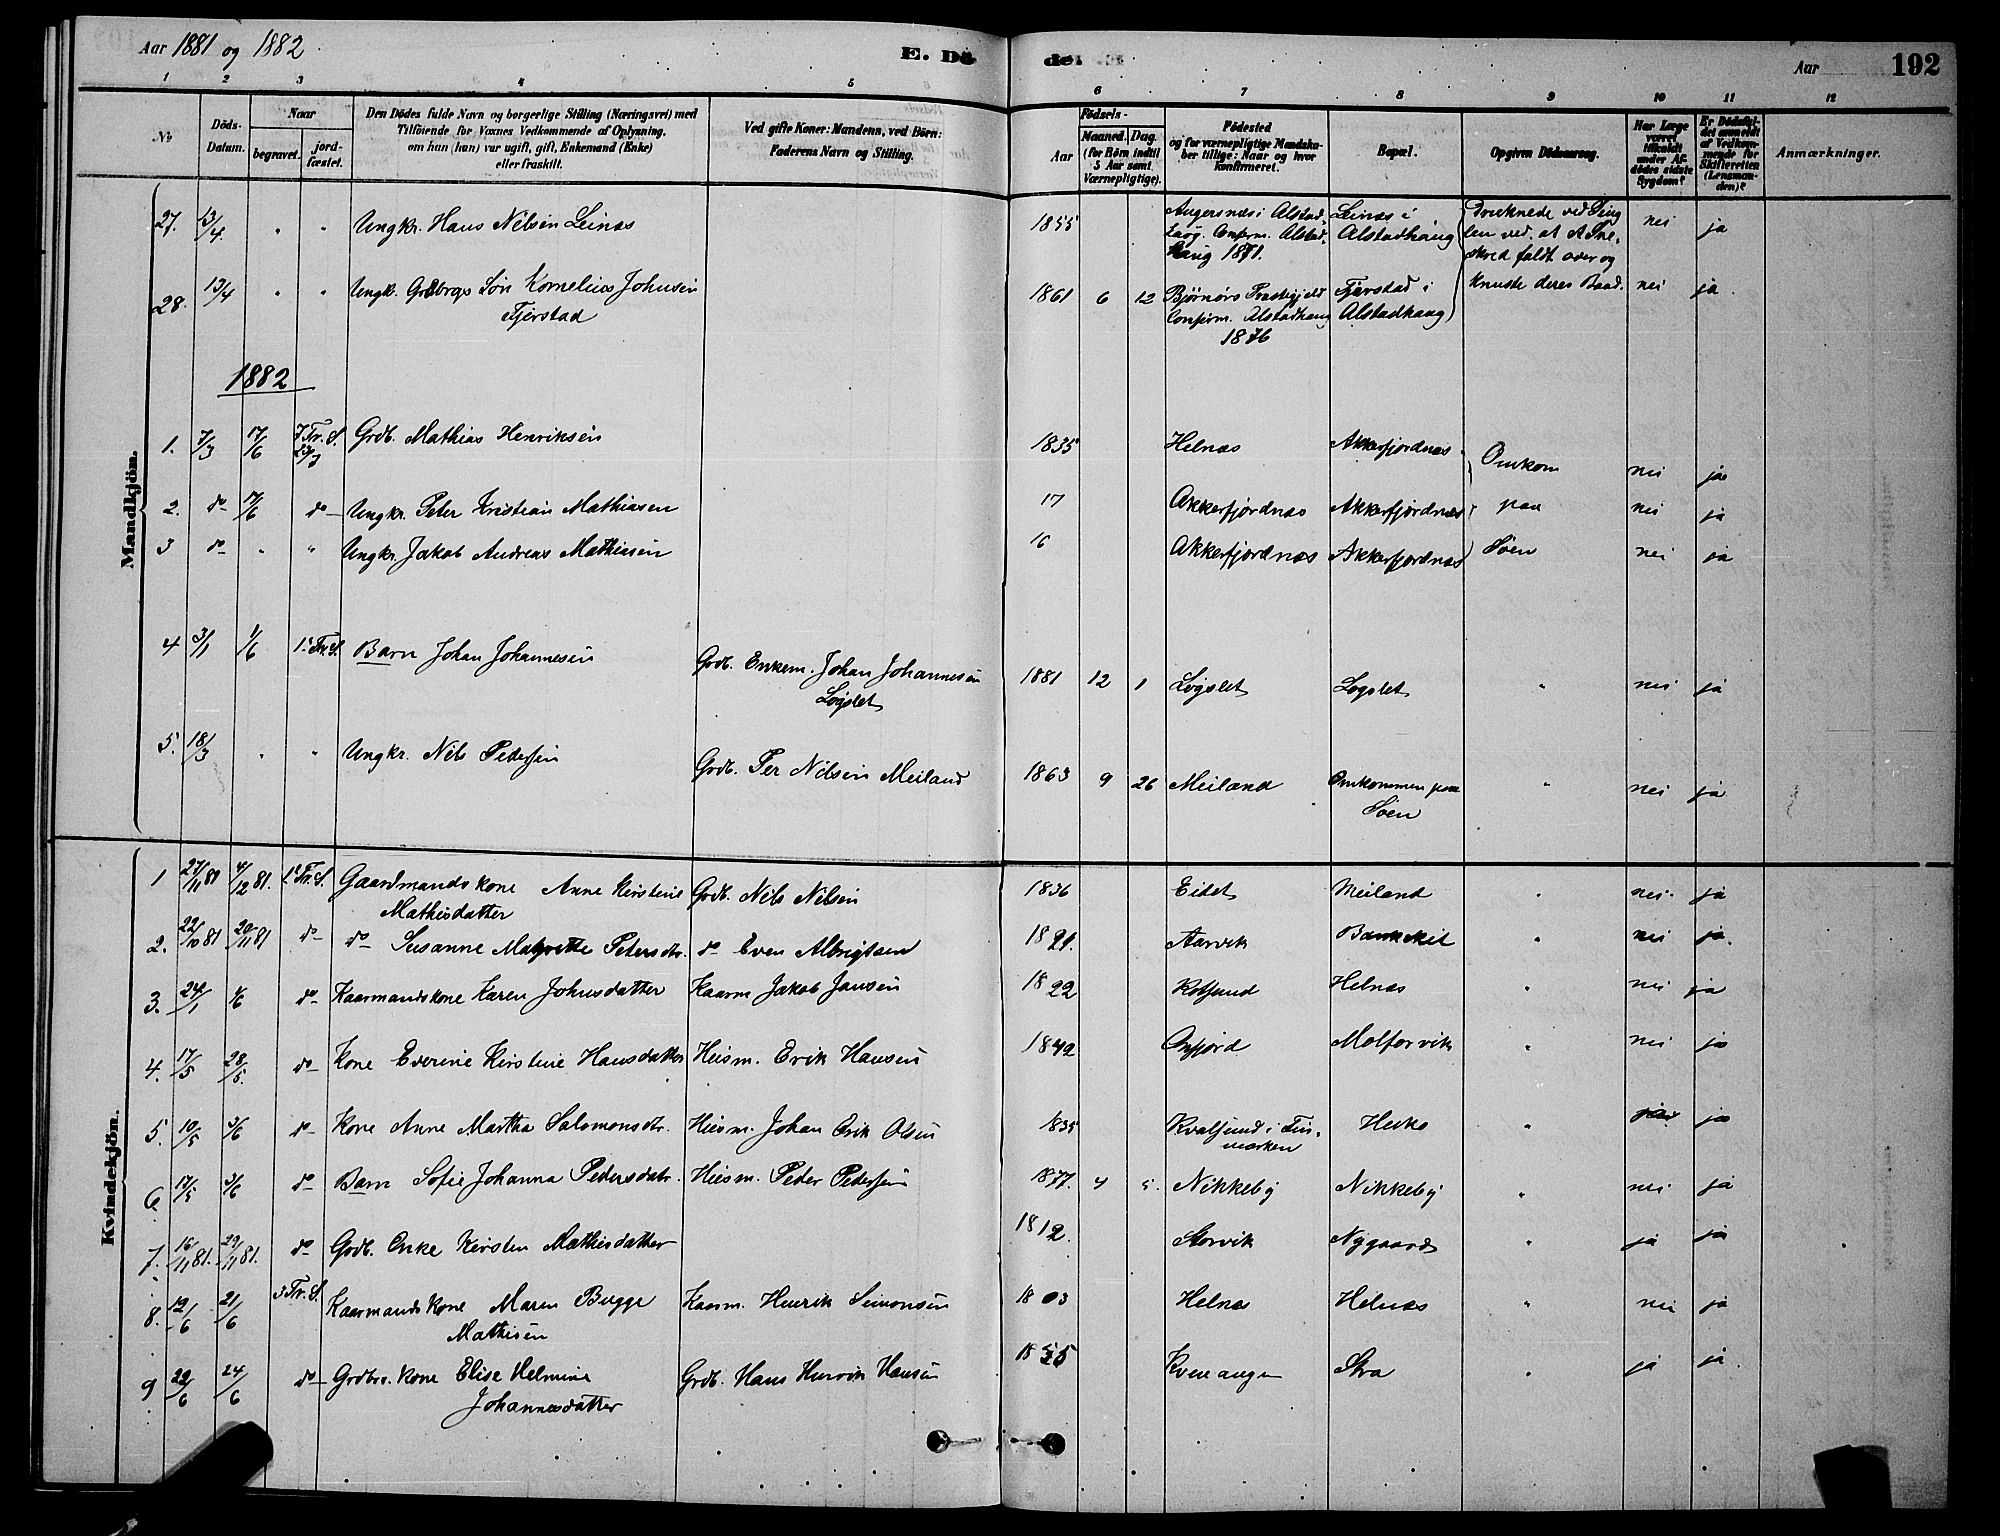 Aar 1881 og 1882
E. Dö de.
Aar 192
1 2 3 4 5 6 7 8 9 10 11 12
No
Döds-Datum.
Naar
begravet.
jord-fæstet.
Den Dödes fulde Navn og borgerlige Stilling (Næringsvei) med
Tilföiende for Voxnes Vedkommende af Oplysning,
om han (hun) var ugift, gift, Enkemand (Enke)
eller fraskilt.
Ved gifte Koner: Mandens, ved Börn:
Faderens Navn og Stilling.
Födsels-
Aar
Maaned. Dag.
(for Börn indtil
5 Aar samt
Værnepligtige).
Födested
og for værnepligtige Mandska-
ber tillige: Naar og hvor
konfirmeret.
Bopæl.
Opgiven Dödsaarsag.
Har Læge
været
tilkaldt
under Af-
dödes sidste
Sygdom?
Er Dödsfal-
det anmeldt
af Vedkom-
mende for
Skifteretten
(Lensman-
den)?
Anmærkninger.
Mandkjön.
27. 13/4 " " Ungkr. Hans Nilsen Leines 1855 Angersnes i Alstad. Confirm. Alstadhaug 1871. Leines i Alstadhaug nei ja
Druknede ved at
skred faldt over og
knuste deres Baad.
28. 13/4 " " Ungk. Grdbrgs Søn Kornelius Johnsen 1861 6 12 Bjørnørs Præstegjeld Tjerstad i nei ja
Tjerstad Confirm. Alstadhaug Alstadhaug
1876
1882
1. 7/3 17/6 Grdb. Mathias Henriksen 1835 Helnæs Akkerfjordnæs Omkom nei ja
2. do 17/6 do Ungkr. Peter Kristian Mathiasen 17 Akkerfjordnæs Akkerfjordnæs paa nei ja
3 do " " Ungkr. Jakob Andreas Mathiasen 16 Akkerfjordnæs Akkerfjordnæs Søen nei ja
4 3/1 1/6 1. Tr. S. Barn Johan Johannesen Grdb. Enkem. Johan Johannesen 1881 12 1 Løgslet Løgslet " nei ja
Løgslet
5. 18/3 " " Ungkr. Nils Pedersen Grdb. Per Nilsen Meiland 1863 9 26 Meiland Omkommen paa " nei ja
Søen
Kvindekjön.
1 27/11 81 4/12 81. 1. Tr. S. Gaardmandskone Anne Kirstine Grdb. Nils Nilsen 1836 Eidet Meiland " nei ja
Mathisdatter
2. 22/10 81 20/11 81 do do Susanne Margrethe Petersdtr. do Even Albrigtsen 1821. Aarvik " nei ja.
3. 24/1 1/6 do Kaarmandskone Karen Johnsdatter Kaarm Jakob Jansen 1822 Helnæs " nei ja
4. 17/5 28/5. do Kone Everine Kirstine Hansdatter Huusm. Erik Hansen 1842 Oxfjord Molforvik " nei ja
5. 10/5 3/6 do Kone Anne Martha Salomonsdtr. Huusm. Johan Erik Olsen 1835 Kvalsund i Fin- " ja
marken
6. 17/5 3/6 do Barn Sofie Johanna Pedersdatr. Huusm. Peder Pedersen 1877. 4 5. Nikkeby Nikkeby " nei ja
7. 16/11 81. 29/11 81. do Grdb. Enke Kirsten Mathisdatter 1812. Storvik Nygaard " ja ja
8. 12/6 21/6 3 Tr. S. Kaarmandskone Maren Bugge Kaarm. Henrik Simonsen 1803 Helnæs Helnæs " nei ja
Mathisen
9 22/6 24/6 do Grdbrs. Kone Elise Helmine Grdb. Hans Henrik Hansen Kvenangen " ja ja.
Johannesdatter